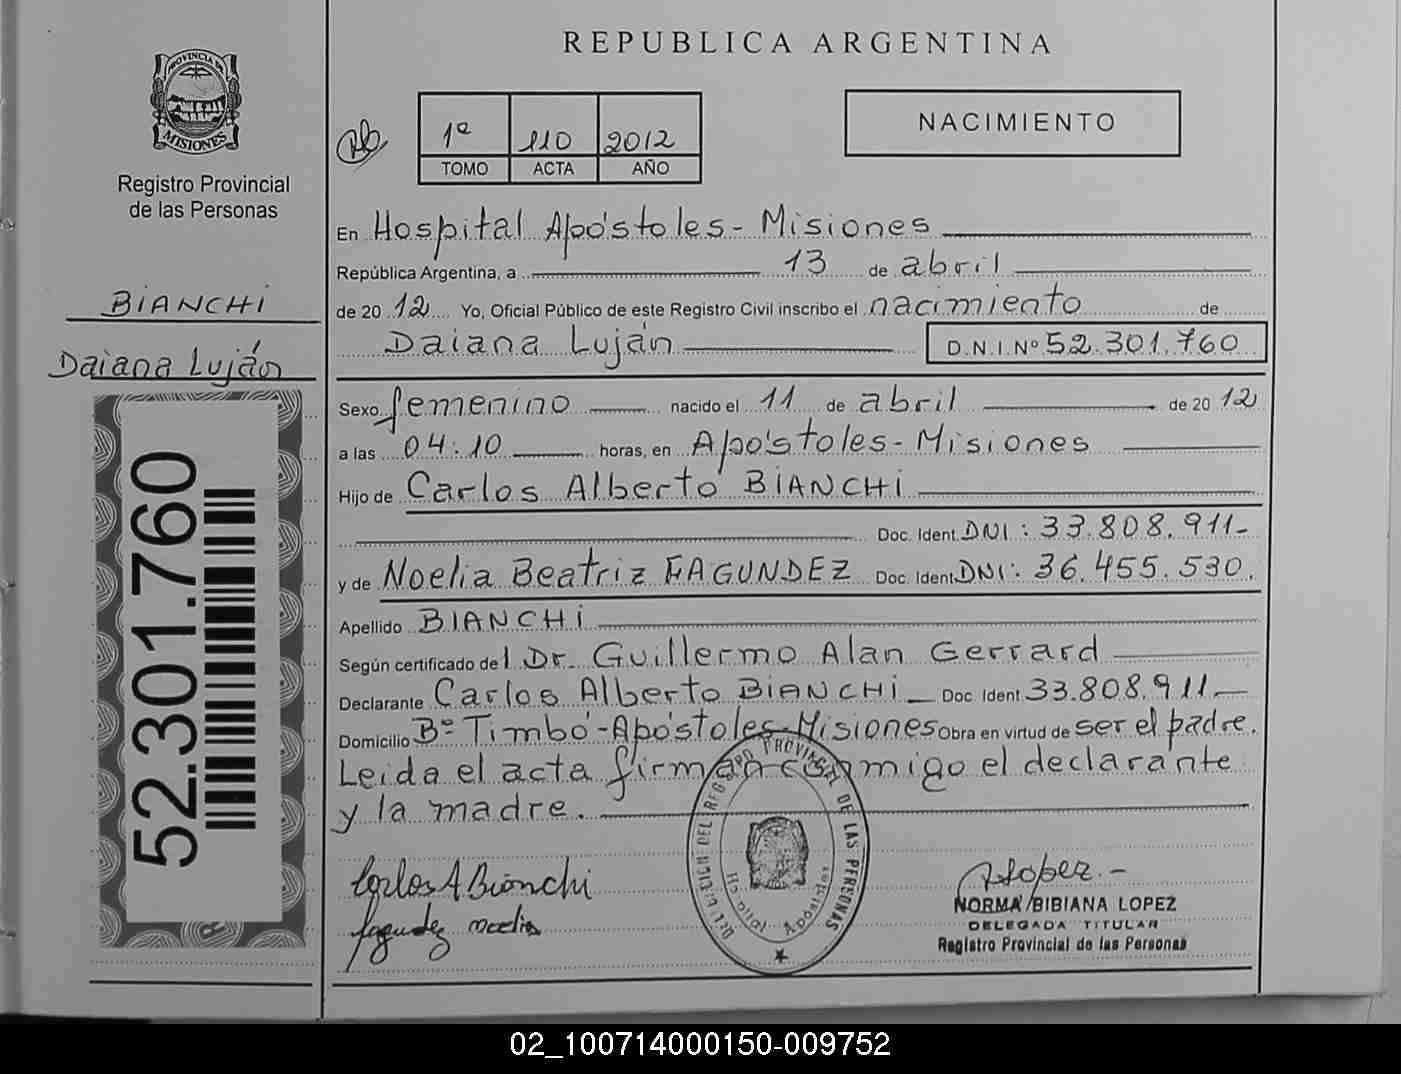 REPUBLICA ARGENTINA
PROVINCIA DE
MISIONES
Registro Provincial
de las Personas
1º 110 2012
TOMO ACTA AÑO
NACIMIENTO
BIANCHI
Daiana Luján
52.301.760
En Hospital Apóstoles - Misiones
República Argentina, a 13 de abril
de 20 12 Yo, Oficial Público de este Registro Civil inscribo el nacimiento de
Daiana Luján D.N.I.Nº 52.301.760
Sexo femenino nacido el 11 de abril de 20 12
a las 04:10 horas, en Apóstoles - Misiones
Hijo de Carlos Alberto BIANCHI
Doc. Ident. DNI: 33.808.911-
y de Noelia Beatriz FAGUNDEZ Doc. Ident. DNI: 36.455.530.
Apellido BIANCHI
Según certificado del Dr. Guillermo Alan Gerrard
Declarante Carlos Alberto BIANCHI - Doc. Ident. 33.808.911-
Domicilio Bº Timbó - Apóstoles - Misiones Obra en virtud de ser el padre.
Leida el acta firman conmigo el declarante
y la madre.
Carlos A Bianchi
Fagundez Noelia
DELEGACION DEL REGISTRO PROVINCIAL DE LAS PERSONAS
Hospital Apóstoles
NLopez.-
NORMA BIBIANA LOPEZ
DELEGADA TITULAR
Registro Provincial de las Personas
02_100714000150-009752